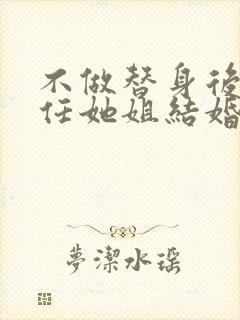 不做替身後
任她姐結婚
夢潔水瑶